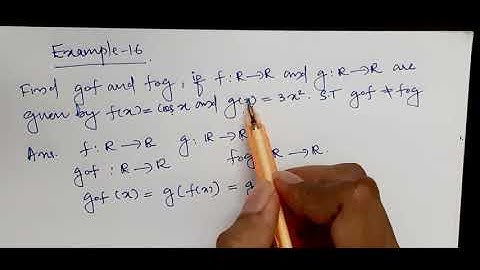 Example-16
Find gof and fog, if f : R→R and g : R→R are
given by f(x) = cos x and g(x) = 3x². S.T gof ≠ fog
Ans. f : R→R g : R→R
gof : R→R fog R→R.
gof (x) = g(f(x)) =